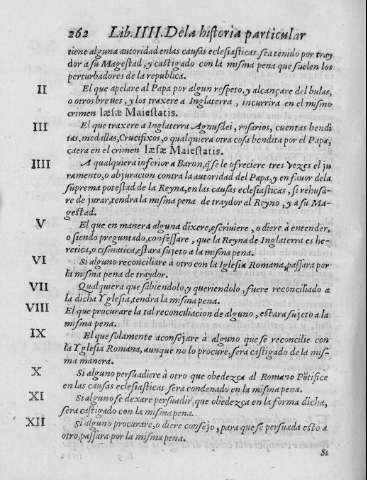 262 Lib.IIII.Dela historia particular
tiene alguna autoridad en las causas eclesiasticas, sea tenido por tray
dor a su Magestad, y castigado con la misma pena que suelen los
perturbadores de la republica.
II El que apelare al Papa por algun respeto, y alcançare del bulas,
o otros breues, y los traxere a Inglaterra, incurrira en el mismo
crimen læsæ Maiestatis.
III El que traxere a Inglaterra Agnusdei, rosarios, cuentas bendi
tas, medallas, Crucifixos, o qualquiera otra cosa bendita por el Papa,
caera en el crimen læsæ Maiestatis.
IIII A qualquiera inferior a Baron, q̃ se le ofreciere tres vezes el ju
ramento, o abjuracion contra la autoridad del Papa, y en fauor dela
suprema potestad de la Reyna, en las causas eclesiasticas, si rehusa-
re de jurar, tendra la misma pena de traydor al Reyno, y a su Ma-
gestad.
V El que en manera alguna dixere, escriuiere, o diere à entender,
o siendo preguntado, confessare, que la Reyna de Inglaterra es he-
retica, o cismatica, estara sujeto a la misma pena.
VI Si alguno reconciliare à otro con la Iglesia Romana, passara por
la misma pena de traydor.
VII Qualquiera que sabiendolo, y queriendolo, fuere reconciliado a
la dicha Yglesia, tendra la misma pena.
VIII El que procurare la tal reconciliacion de alguno, estara sujeto a la
misma pena.
IX El que solamente aconsejare à alguno que se reconcilie con
la Yglesia Romana, aunque no lo procure, sera castigado de la mis-
ma manera.
X Si alguno persuadiere à otro que obedezca al Romano Põtifice
en las causas eclesiasticas sera condenado en la misma pena.
XI Si alguno se dexare persuadir, que obedezca en la forma dicha,
sera castigado con la misma pena.
XII Si alguno procurare, o diere consejo, para que se persuada esto a
otro, passara por la misma pena.
Si